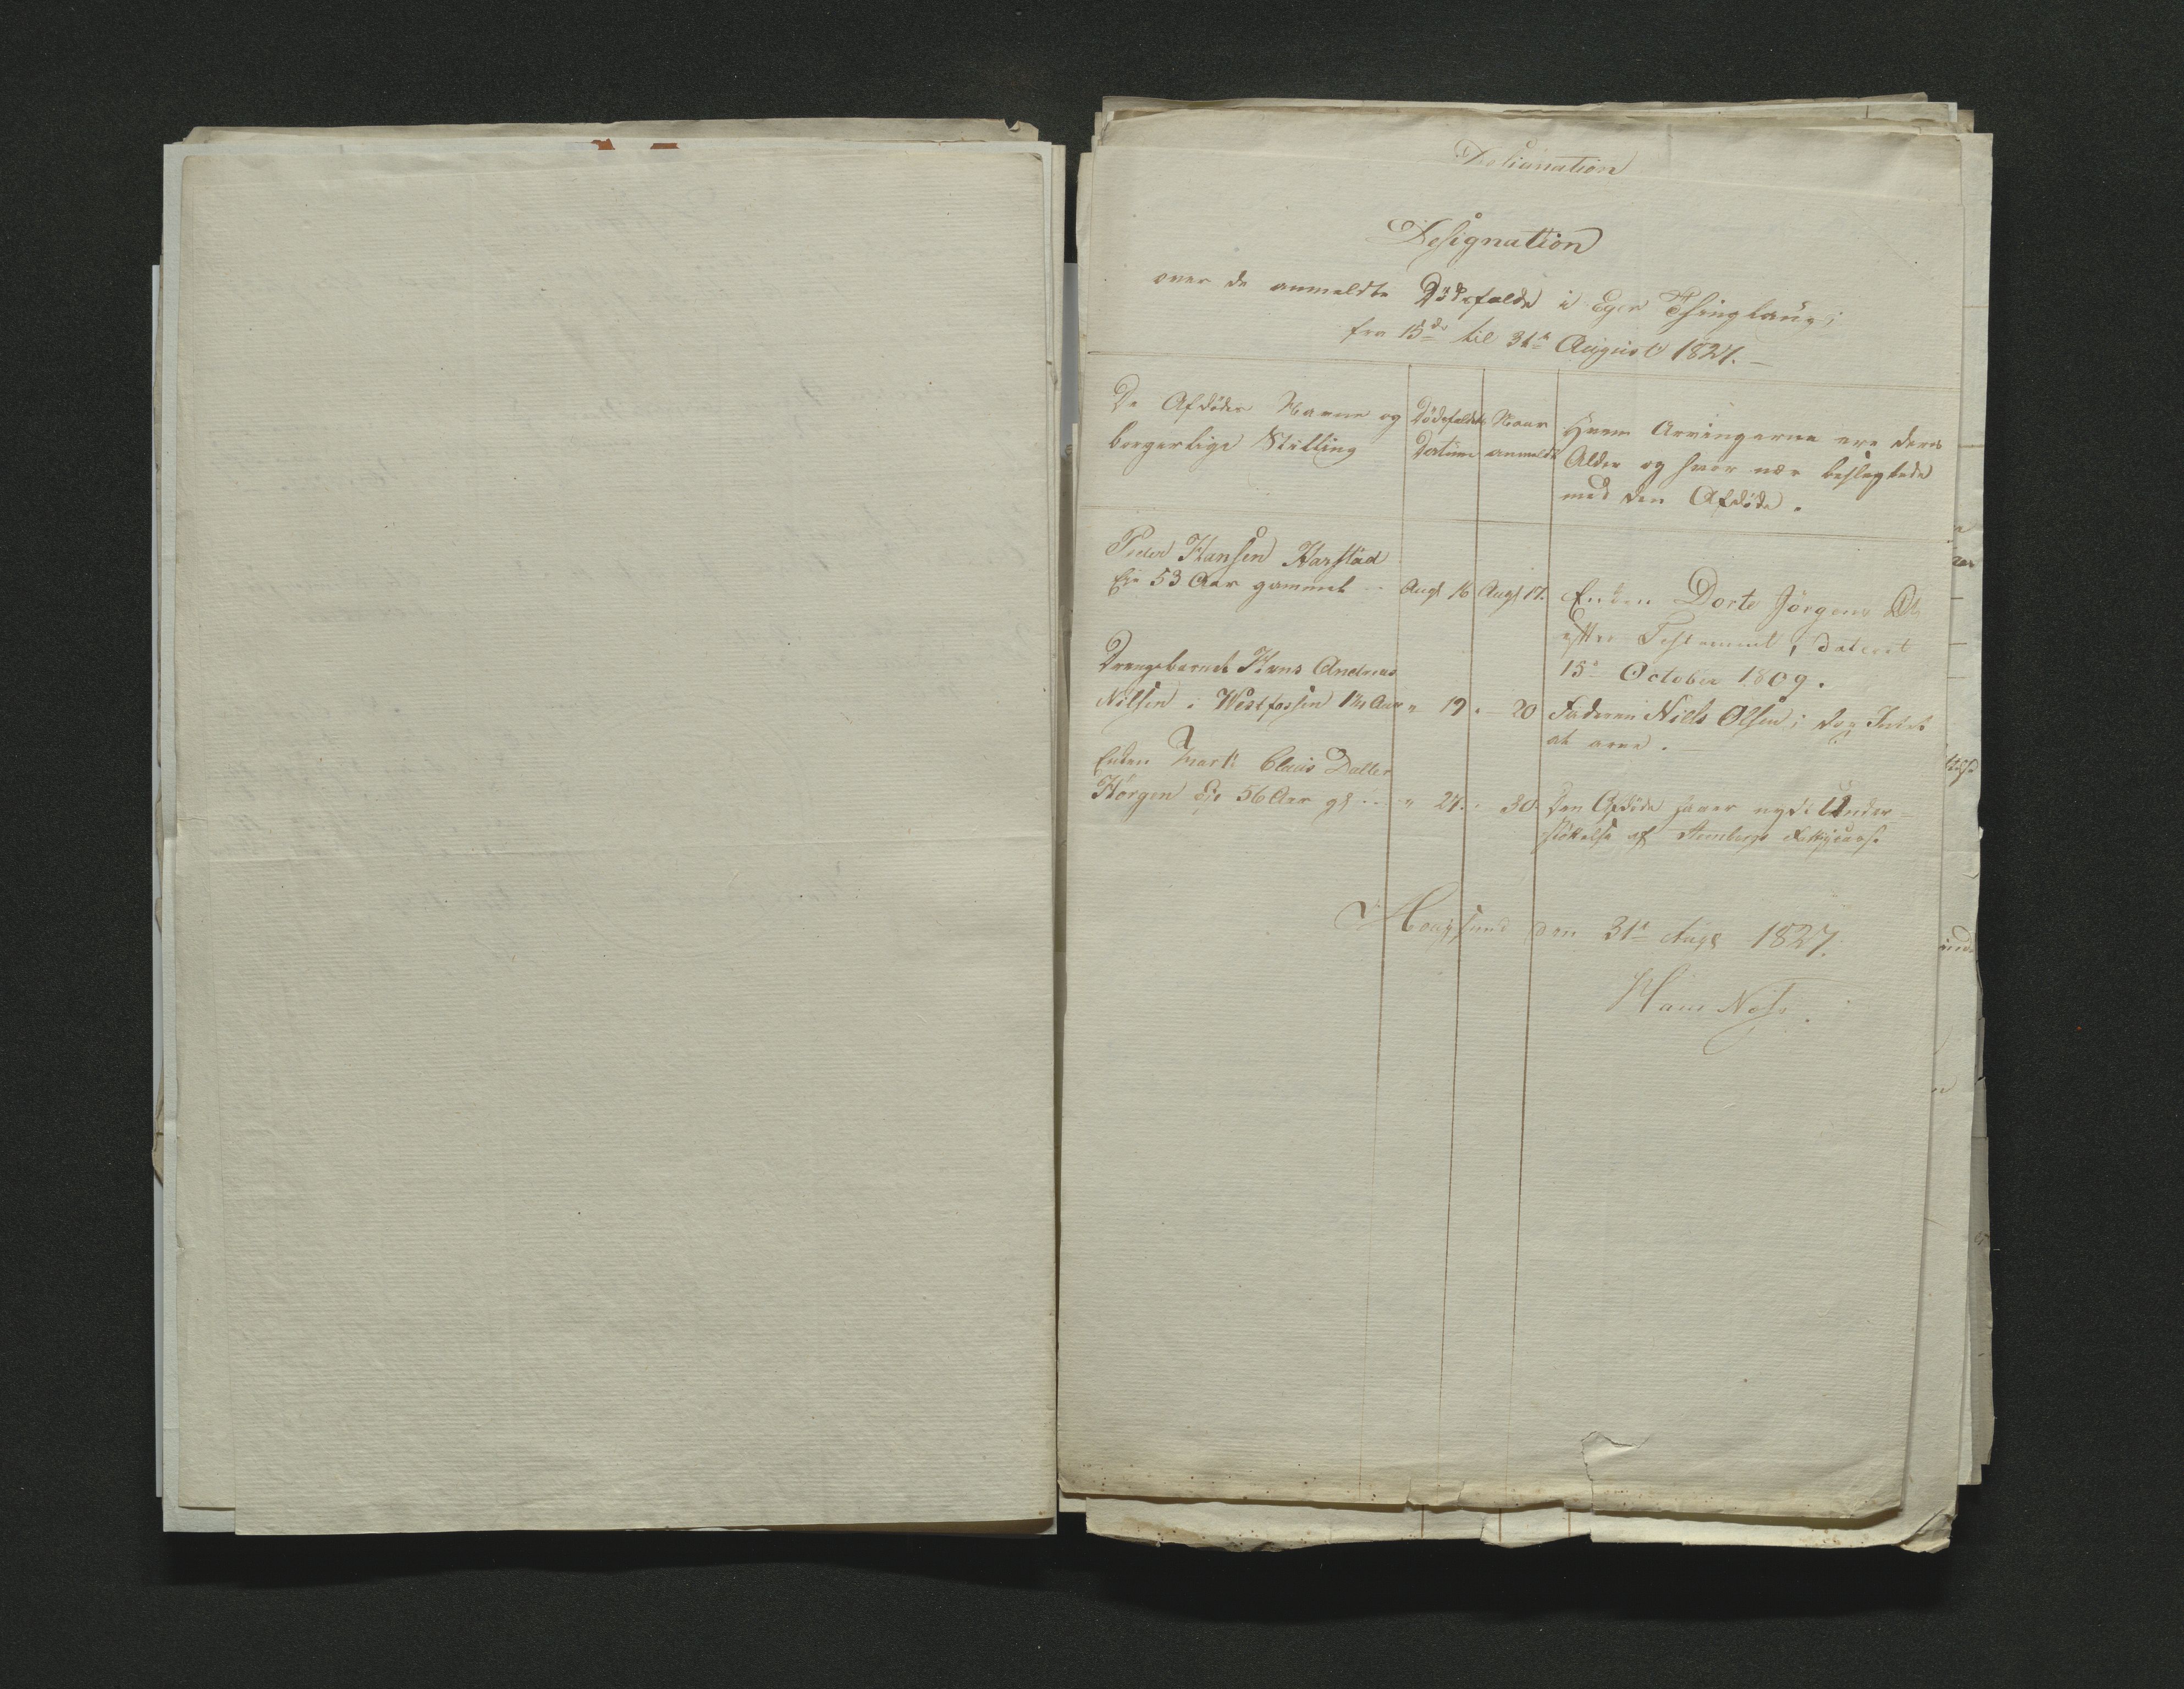 Designation
Designation
over de anmeldte Dödsfalde i Eger Thinglaug;
fra 15de til 31te August 1827.
De Afdödes Navne og
borgerlige Stilling
Dödsfaldets
Datum
Naar
anmeldt
Hvem Arvingerne ere deres
Alder og hvor nær beslegtede
med den Afdöde.
Peder Hansen Harstad
Eie 53 Aar gammel
Augt 16
Augt 17.
Enken Dorte Jörgens Dtr
efter Testament, dateret
15de October 1809.
Drengebarnet Hans Andreas
Nilsen i Westfossen 1¾ Aar
" 19.
" 20
Faderen Niels Olsen; dog Intet
at arve.
Enken Marti Claus Datter
Horgen Eie 56 Aar gl
" 24.
" 30.
Den Afdöde haver nydt Under-
stöttelse af Fattigcasse
Hougsund den 31te Augt 1827.
Hans